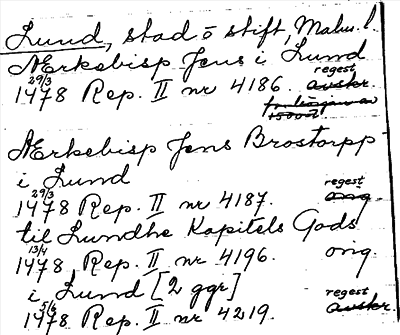 Lund, stad o stift, Malm. l.
Ærkebisp Jens i Lund
29/3 regest
1478 Rep. II nr 4186. avskr.
Ærkebisp Jens Brostorpp
i Lund
29/3 regest
1478 Rep. II nr 4187. orig.
til Lundhe Kapitels Gods
13/4
1478 Rep. II nr 4196. orig.
i Lund [2 ggr]
5/6 regest
1478 Rep. II nr 4219. avskr.